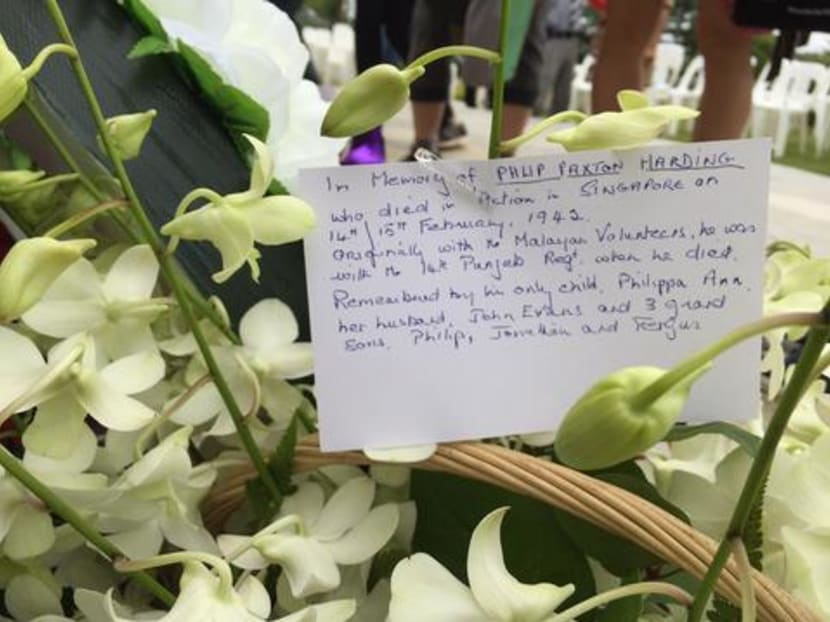 In Memory of PHILIP PAXTON HARDING
who died in Action in SINGAPORE on
14th/15th February, 1942.
Originally with the Malayan Volunteers, he was
with the 14th Punjab Regt. when he died.
Remembered by his only child, Philippa Ann,
her husband, John Evans and 3 grand
Sons, Philip, Jonathan and Fergus